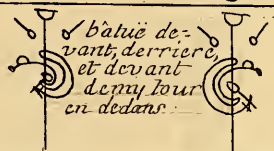 bâtuë de=
vant, derriere,
et devant
demy tour
en dedans.